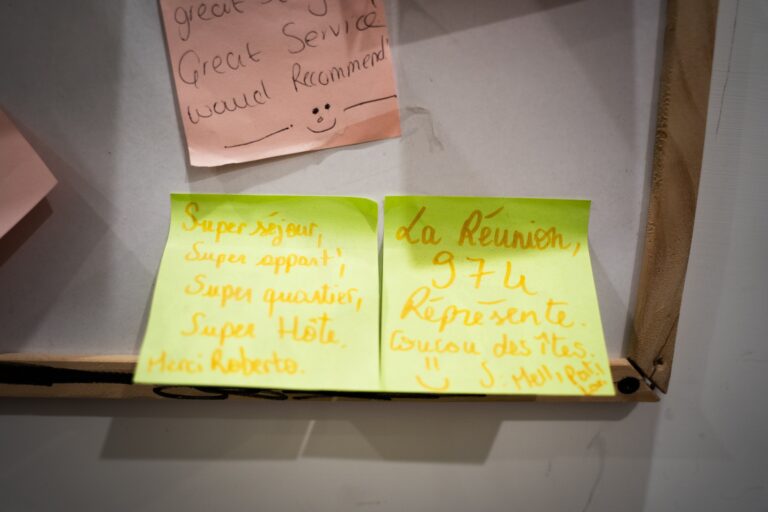 great
Great Service
would Recommend
Super séjour,
Super appart',
Super quartier,
Super Hôte.
Merci Roberto.
La Réunion,
974
Réprésente.
Coucou des îtes.
S: Mell,